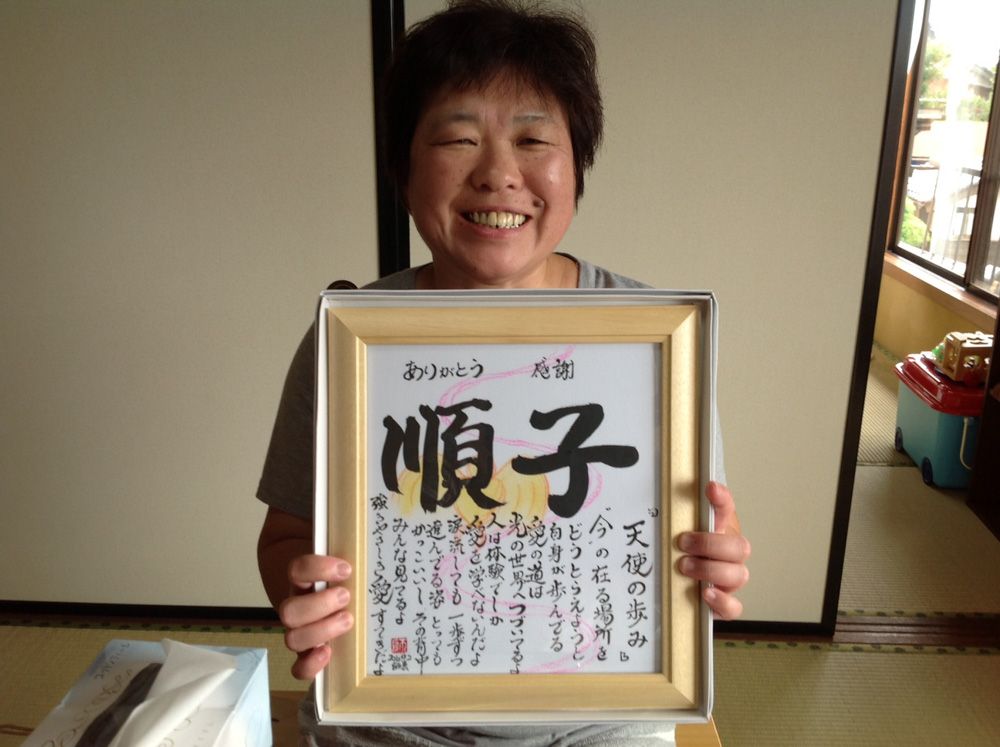 ありがとう 感謝
順子
“天使の歩み”
“今”の在る場所を
どうとらえようと
自身が歩んでる
愛の道は
光の世界へつづいてるよ
人は体験でしか
愛を学べないんだよ
涙流しても 一歩ずつ
進んでる姿 とっても
かっこいいし その背中
みんな見てるよ
強さやさしさ愛 すてきだよ